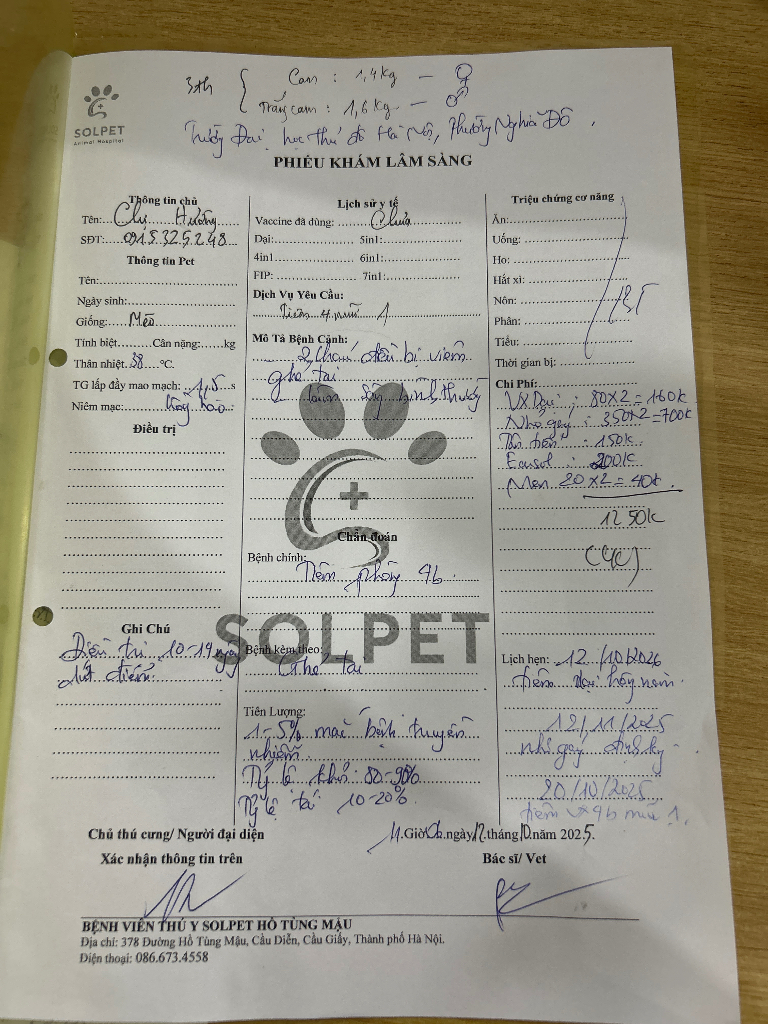 3th { Cam : 1,4kg — ♀
Trắng cam : 1,6kg — ♂
Trường Đại học thủ đô Hà Nội, Phường Nghĩa Đô.
SOLPET
Animal Hospital
PHIẾU KHÁM LÂM SÀNG
Thông tin chủ
Tên: Chị Hường
SĐT: 0915.325.248
Thông tin Pet
Tên:
Ngày sinh:
Giống: Mèo
Tính biệt......Cân nặng:.....kg
Thân nhiệt 38 °C.
TG lấp đầy mao mạch: 1,5 s
Niêm mạc: hồng hào
Điều trị
Ghi Chú
Điều trị 10-14 ngày
dứt điểm
Lịch sử y tế
Vaccine đã dùng: Chưa
Dại: 5in1:
4in1 6in1:
FIP: 7in1:
Dịch Vụ Yêu Cầu:
Tiêm 4 mũi 1
Mô Tả Bệnh Cảnh:
2 cháu đều bị viêm
ghẻ tai
lâm sàng bình thường
Chẩn đoán
Bệnh chính:
Tiêm phòng 4b
SOLPET
Bệnh kèm theo:
Ghẻ tai
Tiên Lượng:
1-5% mắc bệnh truyền
nhiễm
Tỷ lệ khỏi 80-90%
Tỷ lệ tái 10-20%
Triệu chứng cơ năng
Ăn:
Uống:
Ho:
Hắt xì:
Nôn: BT
Phân:
Tiểu:
Thời gian bị:
Chi Phí:
VX Dại : 80x2 = 160k
Nhỏ gáy : 350x2 = 700k
150k
200k
Men 20x2 = 40k.
1250k
(CK)
Lịch hẹn: 12/10/2026
tiêm dại hàng năm
12/11/2025
nhỏ gáy định kỳ
20/10/2025
tiêm vx 4b mũi 1.
Chủ thú cưng/ Người đại diện
Xác nhận thông tin trên
ngày 12 tháng 10 năm 2025.
Bác sĩ/ Vet
BỆNH VIỆN THÚ Y SOLPET HỒ TÙNG MẬU
Địa chỉ: 378 Đường Hồ Tùng Mậu, Cầu Diễn, Cầu Giấy, Thành phố Hà Nội.
Điện thoại: 086.673.4558